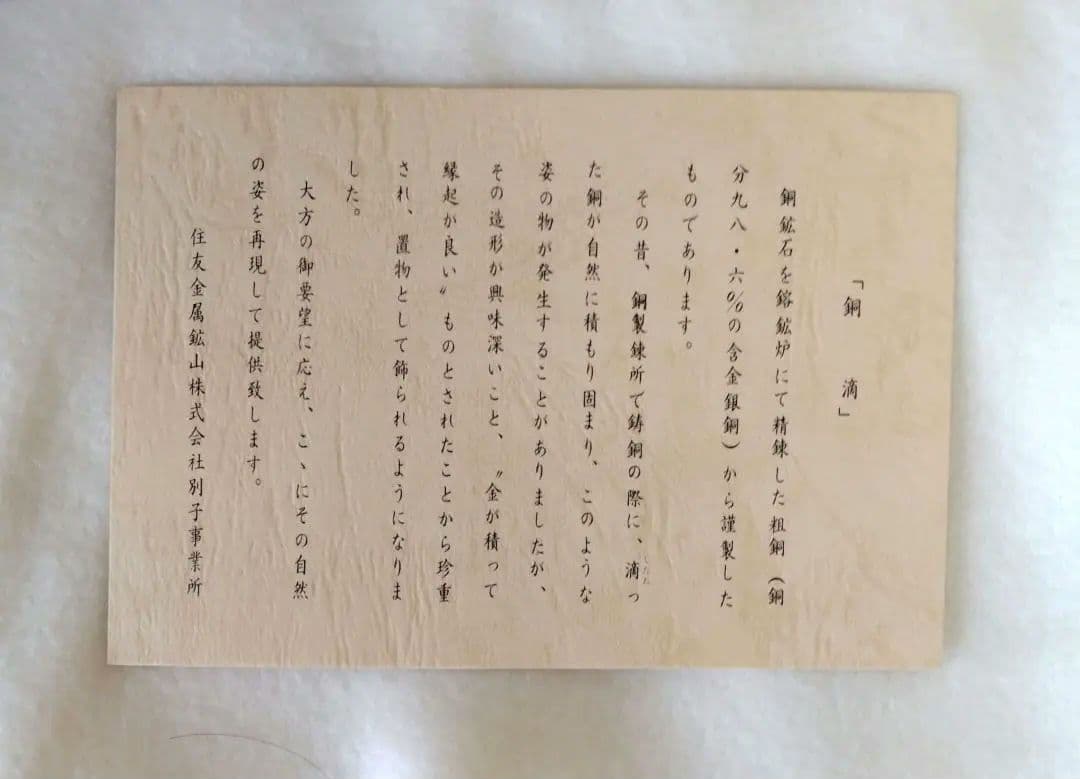 「銅滴」
銅鉱石を鎔鉱炉にて精錬した粗銅(銅
分九八・六%の含金銀銅)から謹製した
ものであります。
その昔、銅製錬所で鋳銅の際に、滴っ
た銅が自然に積もり固まり、このような
姿の物が発生することがありましたが、
その造形が興味深いこと、〝金が積って
縁起が良い〟ものとされたことから珍重
され、置物として飾られるようになりま
した。
大方の御要望に応え、こゝにその自然
の姿を再現して提供致します。
住友金属鉱山株式会社別子事業所